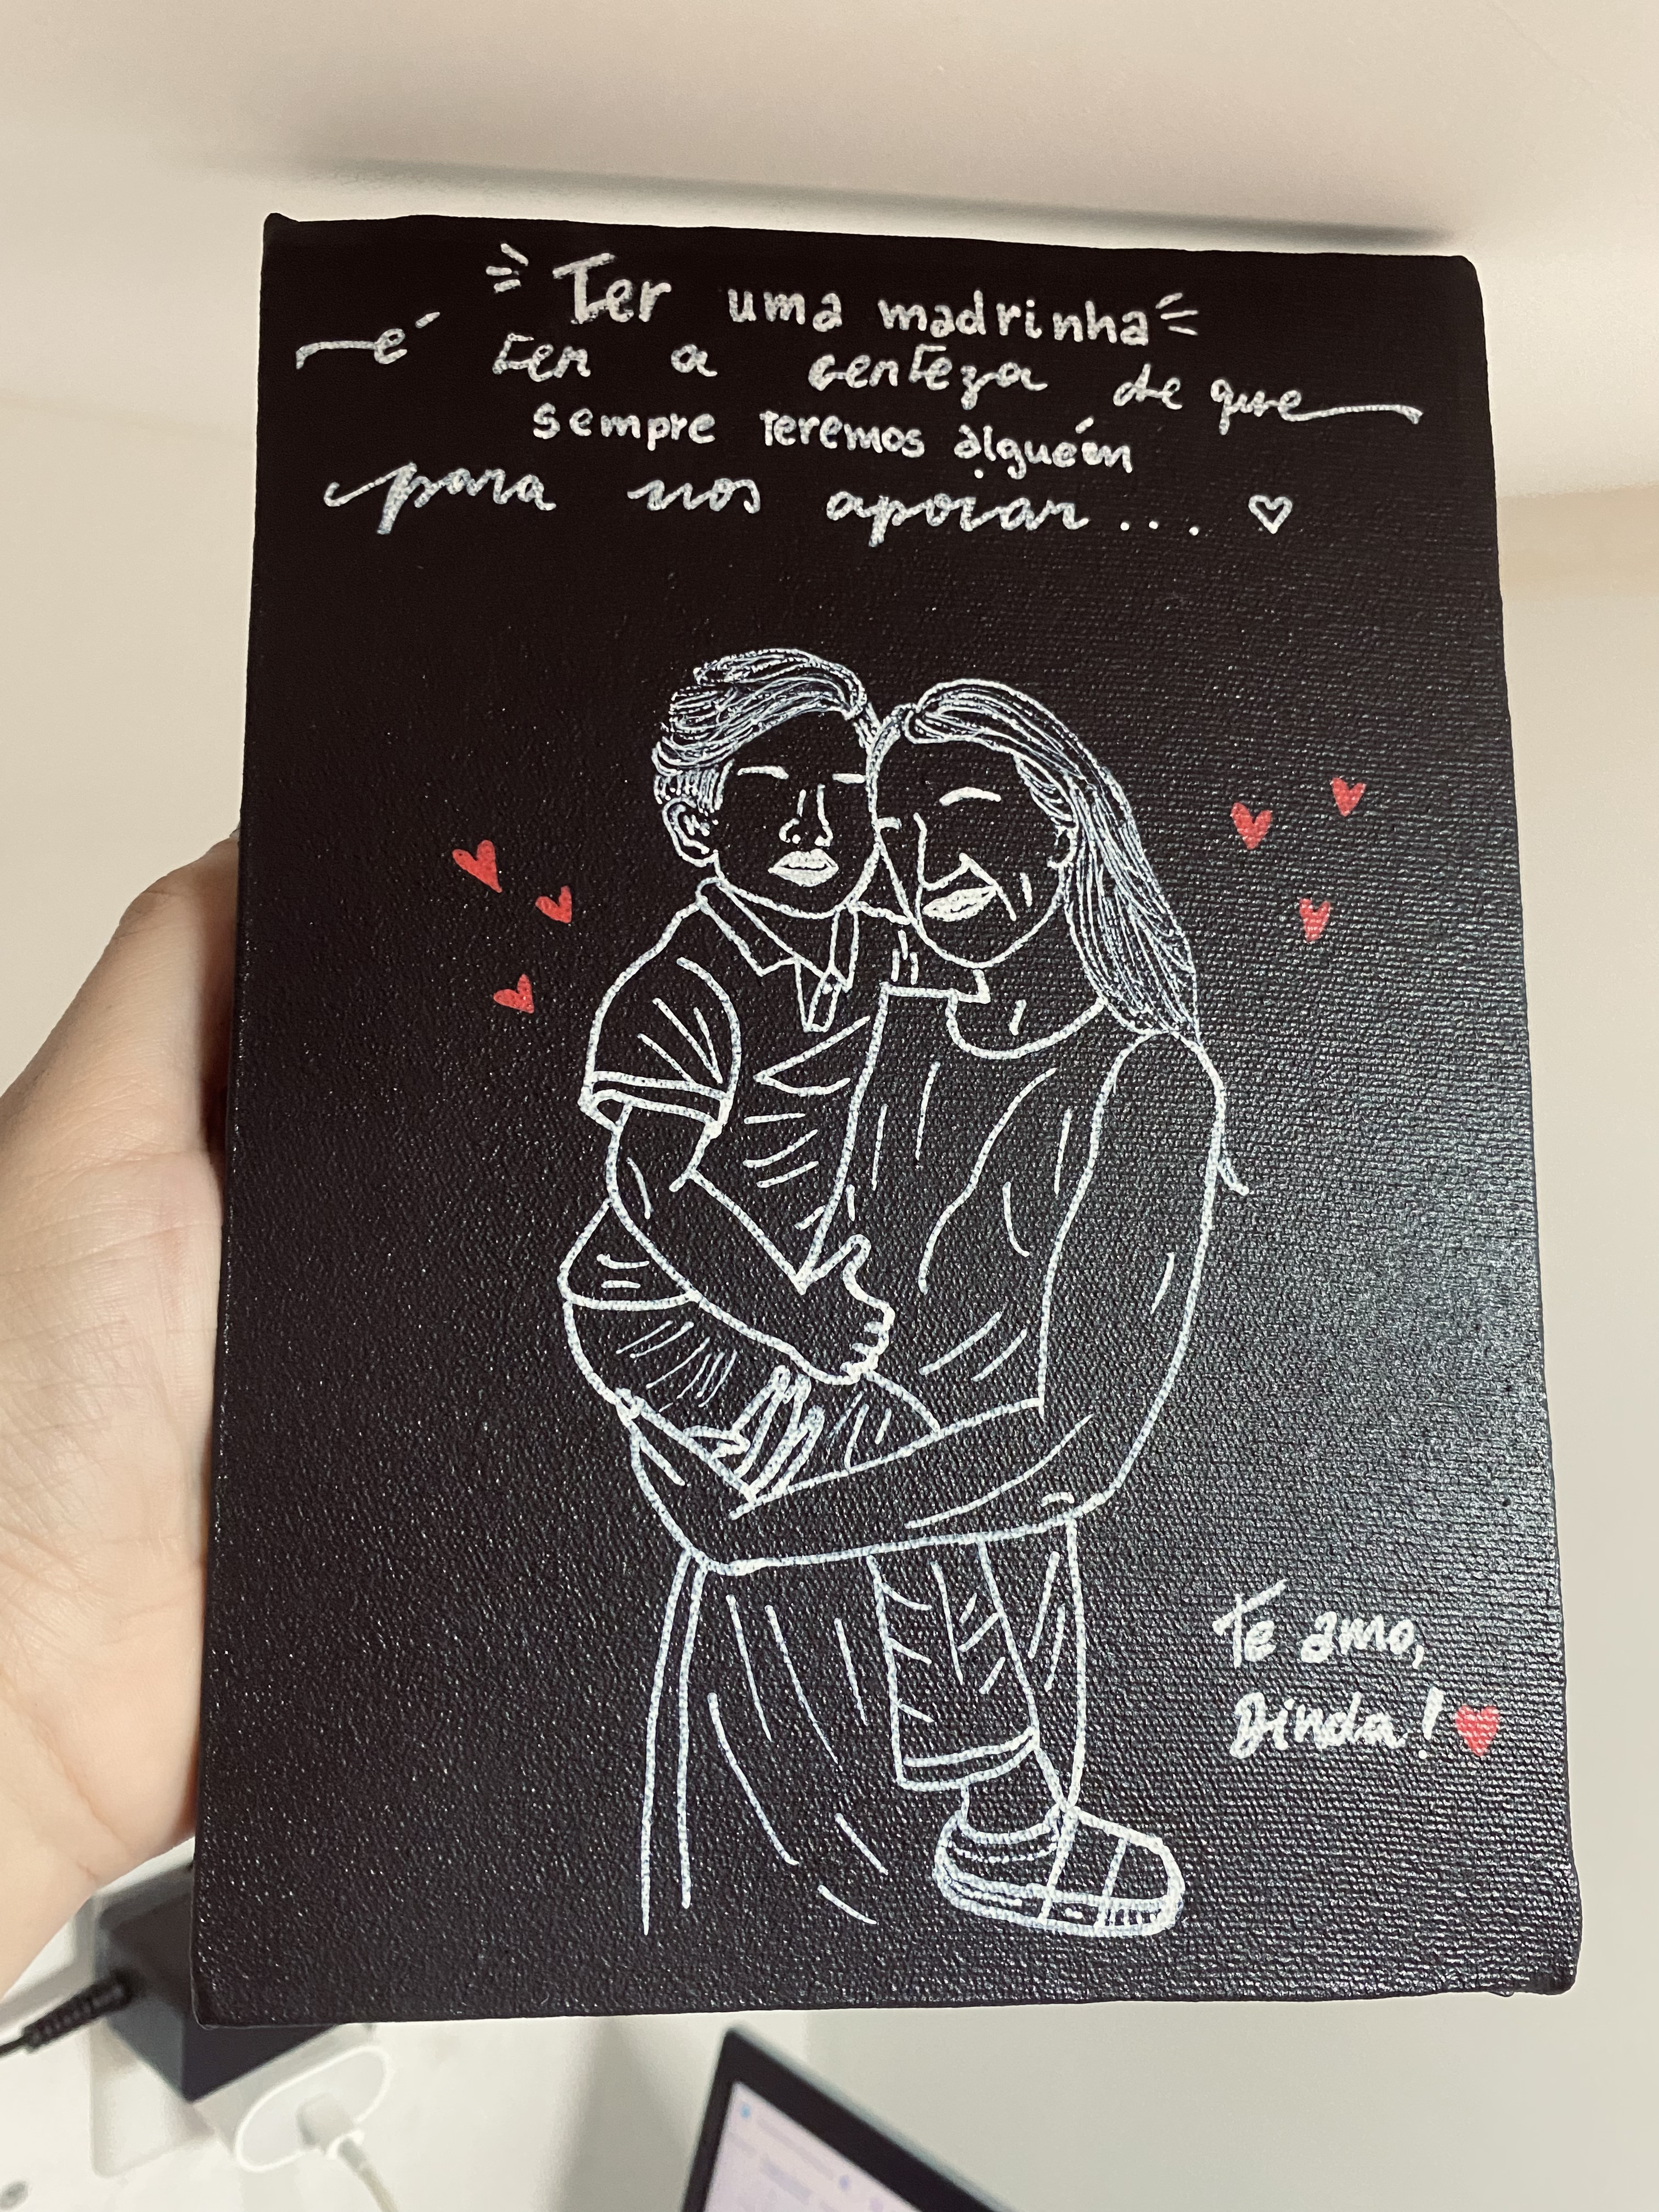 Ter uma madrinha
é ter a certeza de que
sempre teremos alguém
para nos apoiar...
Te amo,
Dinda!